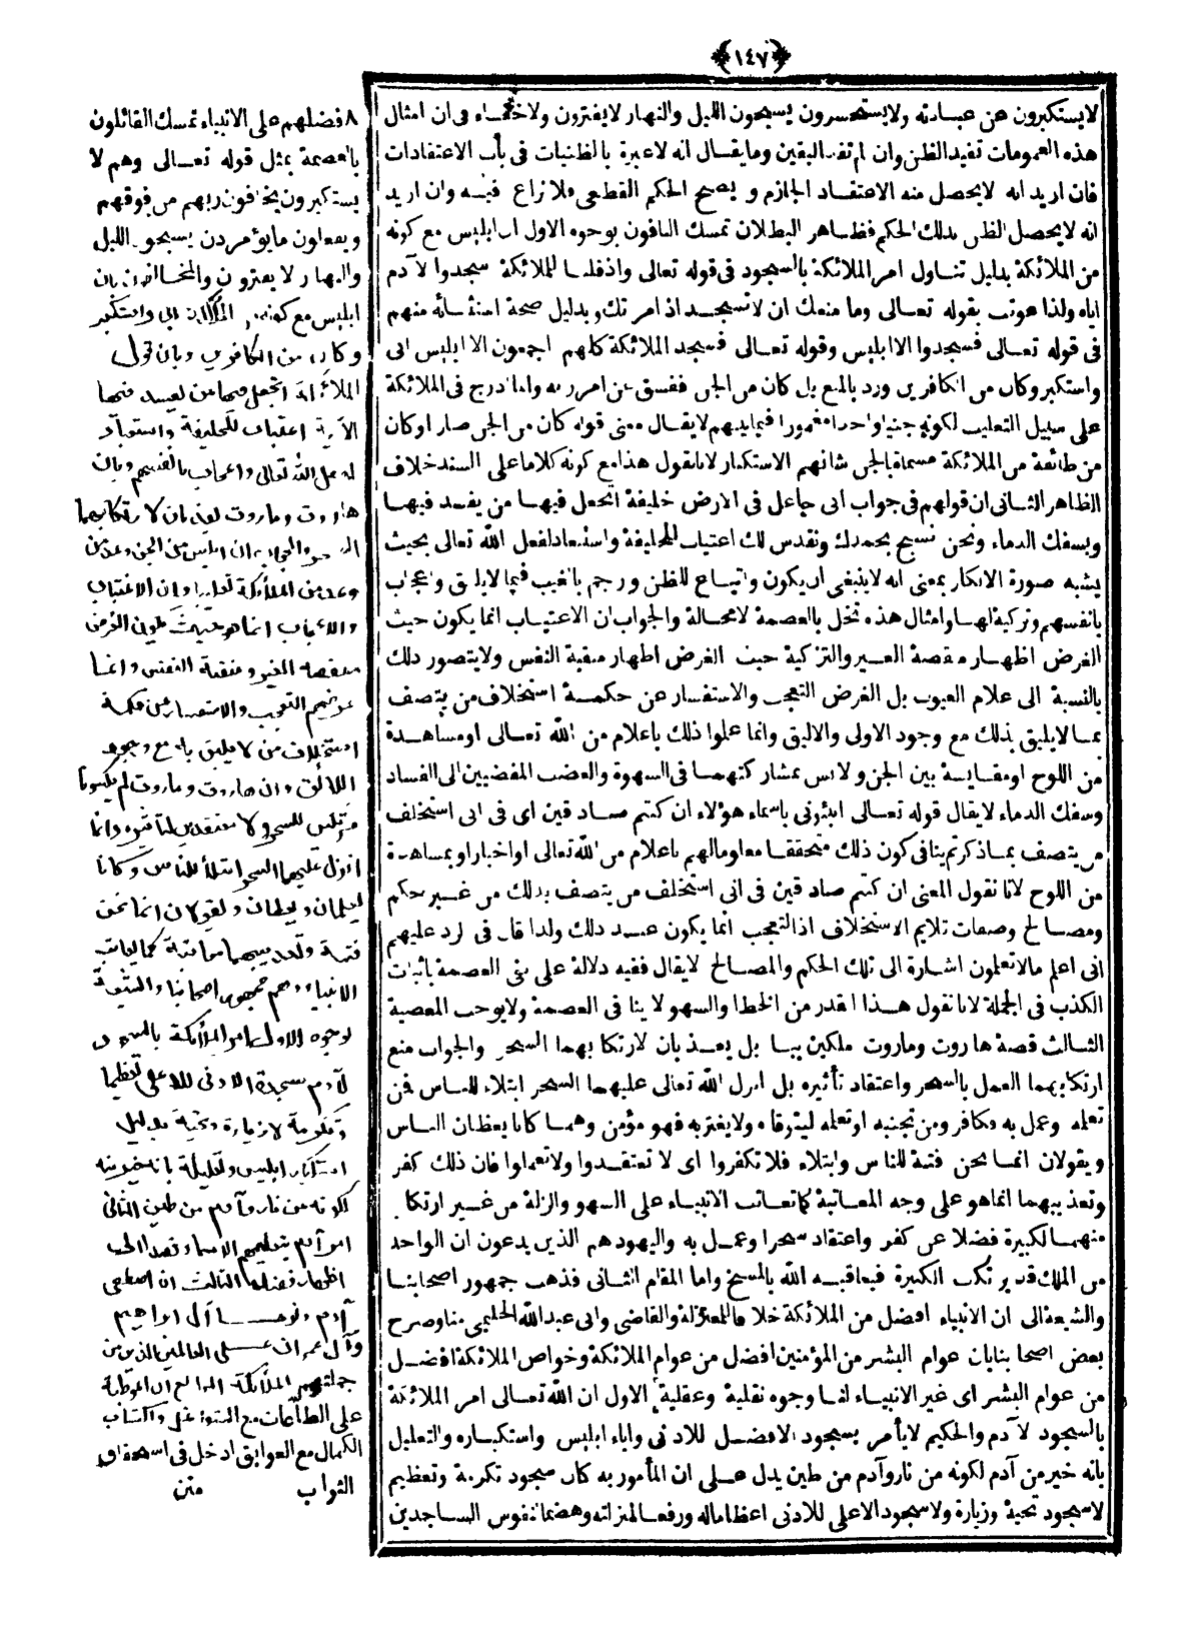 ﴿١٤٧﴾
لا يستكبرون عن عبادته ولا يستحسرون يسبحون الليل والنهار لا يفترون ولا خفاء فى ان امثال
هذه العمومات تفيد الظن وان لم تفد اليقين وما يقال انه لا عبرة بالظنيات فى باب الاعتقادات
فان اريد انه لا يحصل منه الاعتقاد الجازم و يصح الحكم القطعى فلا نزاع فيه وان اريد
انه لا يحصل الظن بذلك الحكم فظاهر البطلان تمسك النافون بوجوه الاول ان ابليس مع كونه
من الملائكة بدليل تناول امر الملائكة بالسجود فى قوله تعالى واذ قلنا للملائكة سجدوا لآدم
اياه ولذا عوتب بقوله تعالى وما منعك ان لا تسجد اذ امرتك و بدليل صحة استثنائه منهم
فى قوله تعالى فسجدوا الا ابليس وقوله تعالى فسجد الملائكة كلهم اجمعون الا ابليس ابى
واستكبر وكان من الكافرين ورد بالمنع بل كان من الجن ففسق عن امر ربه وانما درج فى الملائكة
على سبيل التغليب لكونه جنيا واحدا مغمورا فيما بينهم لا يقال معنى قوله كان من الجن صار او كان
من طائفة من الملائكة مسماة بالجن شانهم الاستكبار لانا نقول هذا مع كونه كلاما على السند خلاف
الظاهر الثانى ان قولهم فى جواب انى جاعل فى الارض خليفة اتجعل فيها من يفسد فيها
ويسفك الدماء ونحن نسبح بحمدك ونقدس لك اغتياب للخليفة واستبعاد لفعل الله تعالى بحيث
يشبه صورة الانكار بمعنى انه لا ينبغى ان يكون واتباع للظن ورجم بالغيب فيما لا يليق واعجاب
بانفسهم وتزكية لها وامثال هذه تخل بالعصمة لا محالة والجواب ان الاغتياب انما يكون حيث
الغرض اظهار منقصة الغير والتزكية حيث الغرض اظهار منقبة النفس ولا يتصور ذلك
بالنسبة الى علام الغيوب بل الغرض التعجب والاستفسار عن حكمة استخلاف من يتصف
بما لا يليق بذلك مع وجود الاولى والاليق وانما علموا ذلك باعلام من الله تعالى او مشاهدة
من اللوح او مقايسة بين الجن والانس بمشاركتهما فى الشهوة والغضب المفضيين الى الفساد
وسفك الدماء لا يقال قوله تعالى انبئونى باسماء هؤلاء ان كنتم صادقين اى فى انى استخلف
من يتصف بما ذكرتم ينافى كون ذلك متحققا معلوما لهم باعلام من الله تعالى او اخبار او بمشاهدة
من اللوح لانا نقول المعنى ان كنتم صادقين فى انى استخلف من يتصف بذلك من غير حكم
ومصالح وصفات تلايم الاستخلاف اذ التعجب انما يكون عند ذلك ولذا قال فى الرد عليهم
انى اعلم ما لا تعلمون اشارة الى تلك الحكم والمصالح لا يقال ففيه دلالة على نفى العصمة باثبات
الكذب فى الجملة لانا نقول هذا القدر من الخطا والسهو لا ينافى العصمة ولا يوجب المعصية
الثالث قصة هاروت وماروت ملكين ببابل يعذبان لارتكابهما السحر والجواب منع
ارتكابهما العمل بالسحر واعتقاد تأثيره بل انزل الله تعالى عليهما السحر ابتلاء للناس فمن
تعلمه وعمل به فكافر ومن تجنبه او تعلمه ليتوقاه ولا يغتر به فهو مؤمن وهما كانا يعظان الناس
ويقولان انما نحن فتنة للناس وابتلاء فلا تكفروا اى لا تعتقدوا ولا تعملوا فان ذلك كفر
وتعذيبهما انما هو على وجه المعاتبة كما تعاتب الانبياء على السهو والزلة من غير ارتكاب
منهما لكبيرة فضلا عن كفر واعتقاد سحر او عمل به واليهود هم الذين يدعون ان الواحد
من الملك قد يرتكب الكبيرة فيعاقبه الله بالمسخ واما المقام الثانى فذهب جمهور اصحابنا
والشيعة الى ان الانبياء افضل من الملائكة خلافا للمعتزلة والقاضى وابى عبدالله الحليمى منا وصرح
بعض اصحابنا بان عوام البشر من المؤمنين افضل من عوام الملائكة وخواص الملائكة افضل
من عوام البشر اى غير الانبياء لنا وجوه نقلية وعقلية الاول ان الله تعالى امر الملائكة
بالسجود لآدم والحكيم لا يأمر بسجود الافضل للادنى واباء ابليس واستكباره والتعليل
بانه خير من آدم لكونه من نار وآدم من طين يدل على ان المأمور به كان سجود تكرمة وتعظيم
لا سجود تحية وزيارة ولا سجود الاعلى للادنى اعظاما له ورفعا لمنزلته وهضما لنفوس الساجدين
٨ فضلهم على الانبياء تمسك القائلون
بالعصمة بمثل قوله تعالى وهم لا
يستكبرون يخافون ربهم من فوقهم
ويفعلون ما يؤمرون يسبحون الليل
والنهار لا يفترون والمخالفون بان
ابليس مع كونه من الملائكة ابى واستكبر
وكان من الكافرين وبان قول
الملائكة اتجعل فيها من يفسد فيها
الآية اغتياب للخليفة واستبعاد
لفعل الله تعالى واعجاب بانفسهم وبان
هاروت وماروت يعذبان لارتكابهما
السحر والجواب ان ابليس من الجن وعد من
وعد من الملائكة تغليبا وان الاغتياب
والاعجاب انما هو حيث يكون الغرض
منقصة الغير ومنقبة النفس وانما
غرضهم التعجب والاستفسار عن حكمة
استخلاف من لا يليق به مع وجود
اللائق وان هاروت وماروت لم يكونا
مرتكبين للسحر ولا معتقدين لتأثيره وانما
انزل عليهما السحر ابتلاء للناس وكانا
يعلمان ويعظان ويقولان انما نحن
فتنة وتعذيبهما معاتبة كما يعاتب
الانبياء وهم جمهور اصحابنا والشيعة
لوجوه الاول امر الملائكة بالسجود
لآدم سجدة الادنى للاعلى تعظيما
وتكرمة لا زيارة وتحية بدليل
استكبار ابليس وتعليله بانه خير منه
لكونه من نار وآدم من طين الثانى
امر آدم بتعليمهم الاسماء قصدا الى
اظهار فضله الثالث ان اصطفى
آدم ونوحا وآل ابراهيم
وآل عمران على العالمين الذين من
جملتهم الملائكة الرابع ان المواظبة
على الطاعات مع الشواغل واكتساب
الكمال مع العوايق ادخل فى استحقاق
الثواب متن